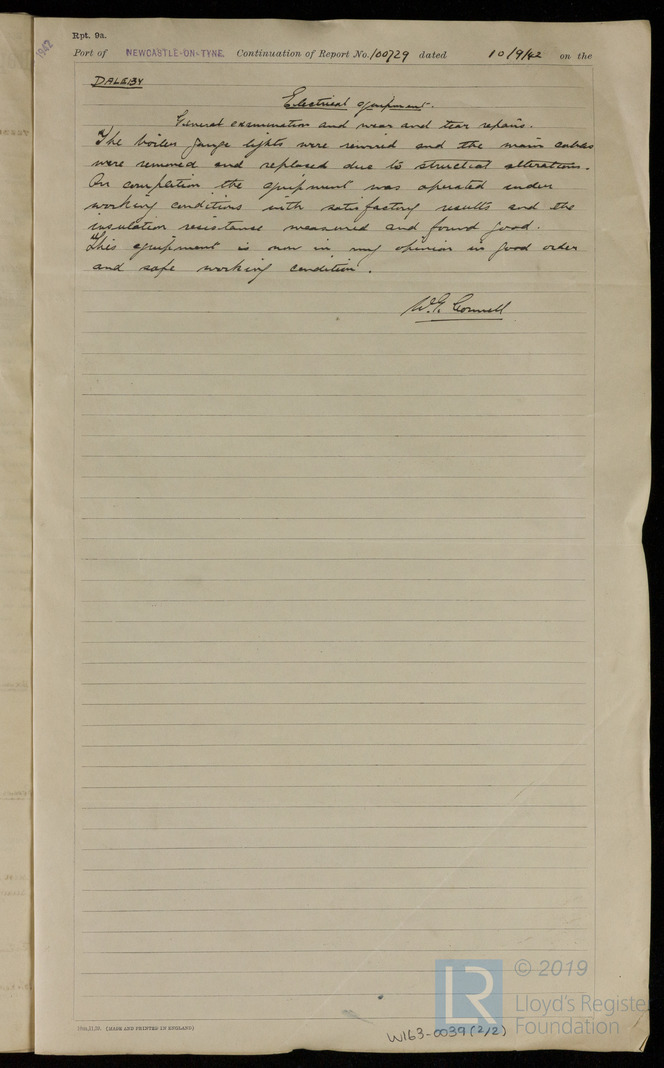 Rpt. 9a.
1942
Port of NEWCASTLE-ON-TYNE. Continuation of Report No. 100729 dated 10/9/42 on the
DALEBY
Electrical equipment.
General examination and wear and tear repairs.
The boiler gauge lights were rewired and the main cables
were removed and replaced due to structural alterations.
On completion the equipment was operated under
working conditions with satisfactory results and the
insulation resistance measured and found good.
This equipment is now in my opinion in good order
and safe working condition.
W.G. Connell
(MADE AND PRINTED IN ENGLAND)
W163-0039 (2/2)
LR
© 2019
Lloyd's Register
Foundation